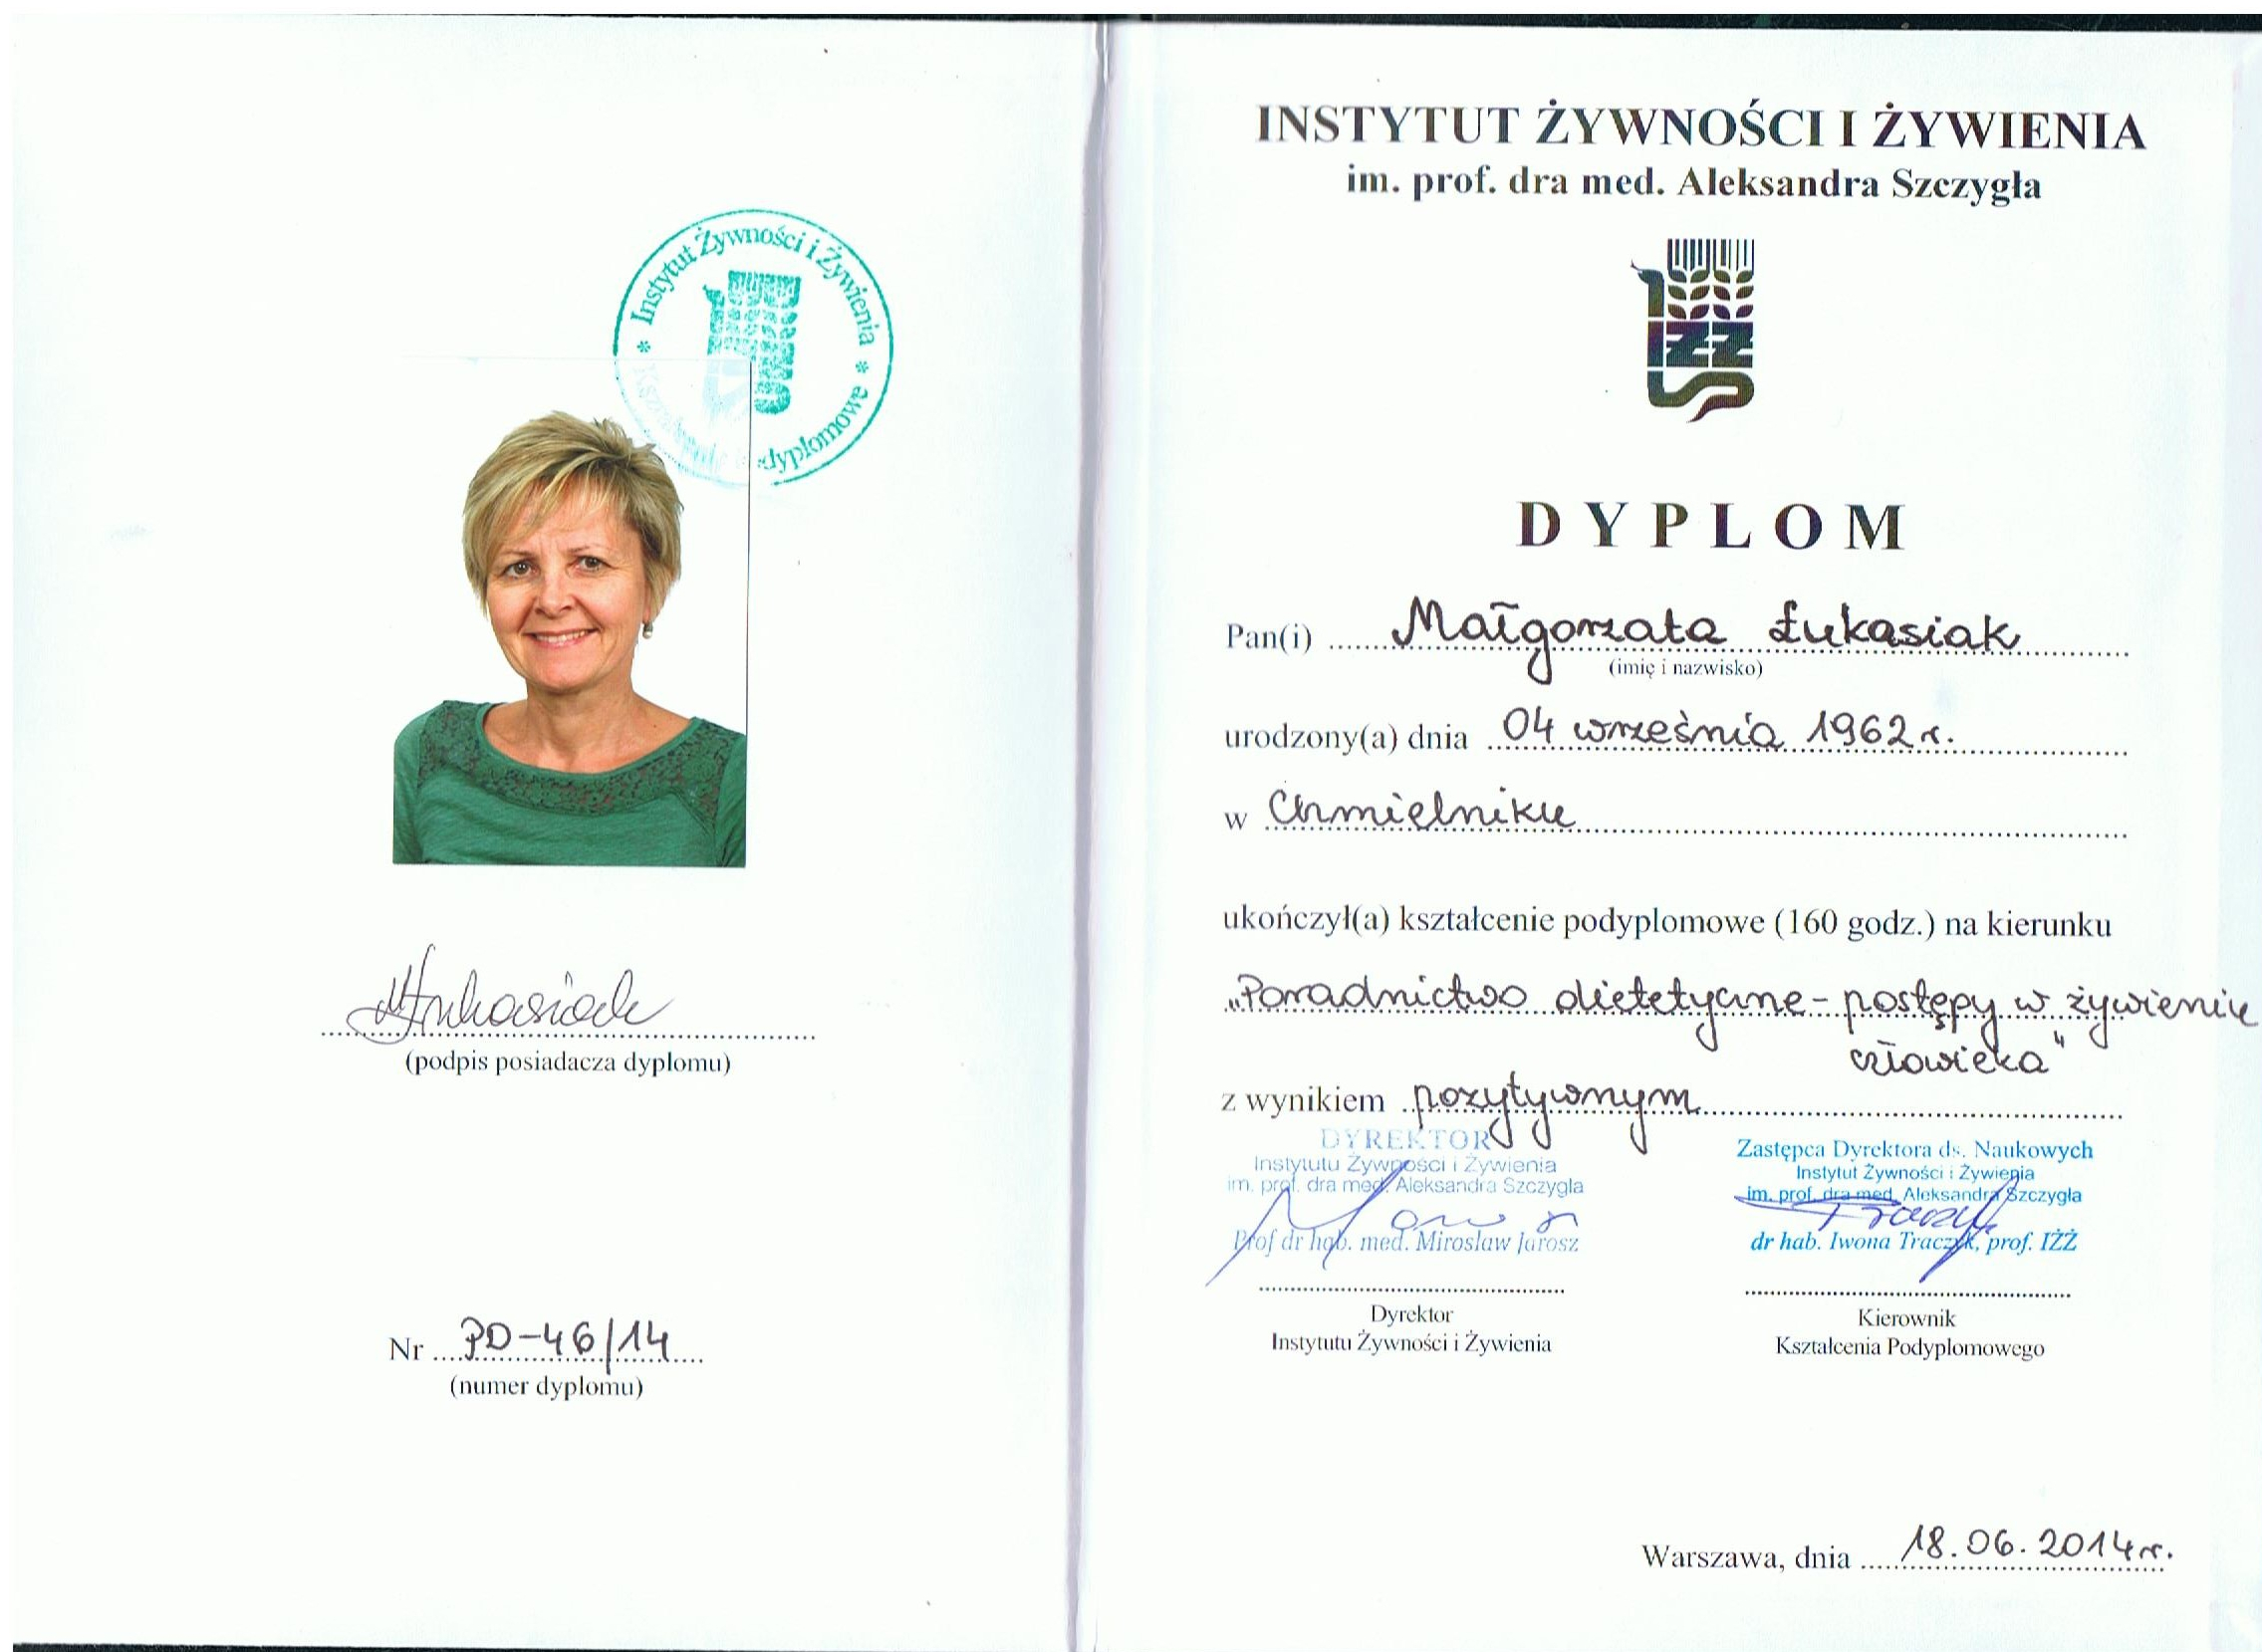 Instytut Żywności i Żywienia
* *
dyplomowe
MŁukasiak
(podpis posiadacza dyplomu)
Nr PD-46/14
(numer dyplomu)
INSTYTUT ŻYWNOŚCI I ŻYWIENIA
im. prof. dra med. Aleksandra Szczygła
IŻŻ
DYPLOM
Pan(i) Małgorzata Łukasiak
(imię i nazwisko)
urodzony(a) dnia 04 września 1962 r.
w Chmielniku
ukończył(a) kształcenie podyplomowe (160 godz.) na kierunku
„Poradnictwo dietetyczne - postępy w żywieniu
człowieka"
z wynikiem pozytywnym
DYREKTOR
Instytutu Żywności i Żywienia
im. prof. dra med. Aleksandra Szczygła
Prof dr hab. med. Mirosław Jarosz
Dyrektor
Instytutu Żywności i Żywienia
Zastępca Dyrektora ds. Naukowych
Instytut Żywności i Żywienia
im. prof. dra med. Aleksandra Szczygła
dr hab. Iwona Traczyk, prof. IŻŻ
Kierownik
Kształcenia Podyplomowego
Warszawa, dnia 18.06.2014 r.